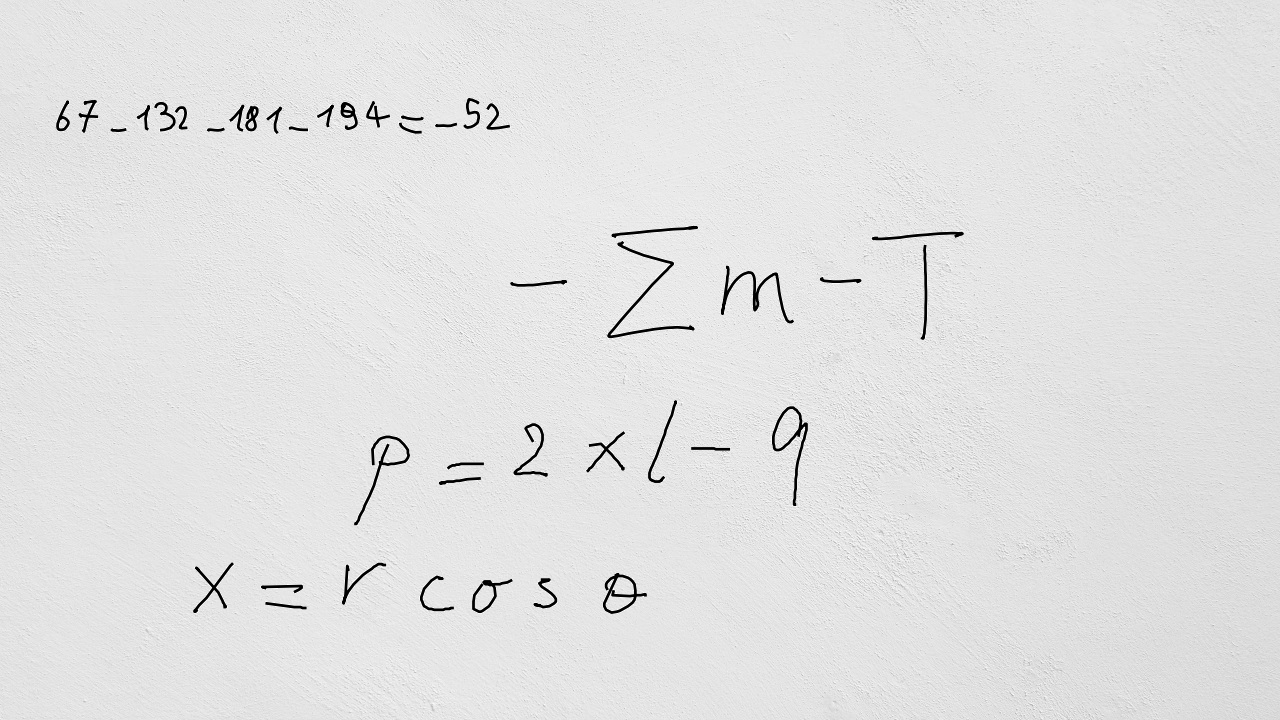 67 - 132 - 181 - 194 = - 52
- ∑ m - T
ρ = 2 × l - q
x = r cos θ